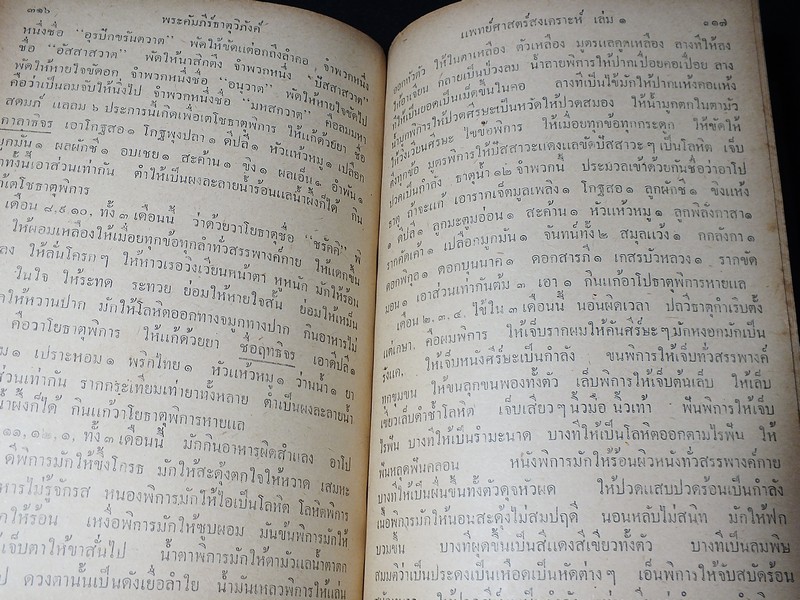 ๓๑๖ พระคัมภีร์ธาตุวิภังค์
หนึ่งชื่อ "อุรปักขรันตวาต" พัดให้ขัดแต่อกถึงลำคอ, จำพวกหนึ่ง
ชื่อ "อัสสาสวาต" พัดให้นาสิกตึง จำพวกหนึ่ง "ปัสสาสวาต"
พัดให้หายใจขัดอก จำพวกหนึ่งชื่อ "อนุวาต" พัดให้หายใจขัดไป
คือว่าเป็นลมจับให้นิ่งไป จำพวกหนึ่งชื่อ "มหสกวาต" คือลมมหา
สดมภ์ แลลม ๖ ประการนี้เกิดเพื่อเตโชธาตุพิการ ให้แก้ด้วยยา ชื่อ
กาลาธิจร เอาโกฐสอ ๑ โกฐพุงปลา ๑ ดีปลี ๑ หัวแห้วหมู ๑ เปลือก
มูกมัน ๑ ผลผักชี ๑ อบเชย ๑ สะค้าน ๑ ขิง ๑ ผลเอ็น ๑ อำพัน ๑
ทั้งนี้เอาส่วนเท่ากัน ตำให้เป็นผงละลายน้ำร้อนแลน้ำผึ้งก็ได้ กิน
แก้เตโชธาตุพิการ
เดือน ๘,๙,๑๐, ทั้ง ๓ เดือนนี้ ว่าด้วยวาโยธาตุชื่อ "ชรัคคี" พิ
ให้ผอมเหลืองให้เมื่อยทุกข้อทุกลำทั่วสรรพางค์กาย ให้แดกขึ้น
ลง ให้ลั่นโครกๆ ให้หาวเรอวิงเวียนหน้าตา หูหนัก มักให้ร้อน
ในใจ ให้ระทด ระทวย ย่อมให้หายใจสั้น ย่อมให้เหม็น
ให้หวานปาก มักให้โลหิตออกทางจมูกทางปาก กินอาหารไม่
คือวาโยธาตุพิการ ให้แก้ด้วยยา ชื่อฤทธิจร เอาดีปลี ๑
๑ เปราะหอม ๑ พริกไทย ๑ หัวแห้วหมู ๑ ว่านน้ำ ๑ ยา
ส่วนเท่ากัน รากกระเทียมเท่ายาทั้งหลาย ตำเป็นผงละลายน้ำ
น้ำผึ้งก็ได้ กินแก้วาโยธาตุพิการหายแล
๑๑,๑๒,๑, ทั้ง ๓ เดือนนี้ มักกินอาหารผิดสำแลง อาโป
ดีพิการมักให้ขึ้งโกรธ มักให้สะดุ้งตกใจให้หวาด เสมหะ
หารไม่รู้จักรส หนองพิการมักให้ไอเป็นโลหิต โลหิตพิการ
ให้ร้อน เหงื่อพิการมักให้ซูบผอม มันข้นพิการมักให้
เจ็บตาให้ขาสั่นไป น้ำตาพิการมักให้ตามัวแลน้ำตาตก
ป ดวงตานั้นเป็นดังเยื่อลำใย น้ำมันเหลวพิการให้แล่น
แพทย์ศาสตร์สงเคราะห์ เล่ม ๑ ๓๑๗
ออกทั่วตัว ให้ในตาเหลือง ตัวเหลือง มูตรแลคูดเหลือง ลางทีให้ลง
ให้อาเจียน กลายเป็นป่วงลม น้ำลายพิการให้ปากเปื่อยคอเปื่อย ลาง
ทีให้เป็นยอดเป็นเม็ดขึ้นในคอ ลางทีเป็นไข้มักให้ปากแห้งคอแห้ง
น้ำมูกพิการให้ปวดศีรษะเป็นหวัดให้ปวดสมอง ให้น้ำมูกตกในตามัว
ให้วิงเวียนศรษะ ไขข้อพิการ ให้เมื่อยทุกข้อทุกกระดูก ให้ขัดให้
ตึงทุกข้อ มูตรพิการให้ปัสสาวะแดงแลขัดปัสสาวะๆ เป็นโลหิต เจ็บ
ปวดเป็นกำลัง ธาตุน้ำ ๑๒ จำพวกนี้ ประมวลเข้าด้วยกันชื่อว่าอาโป
ธาตุ ถ้าจะแก้ เอารากเจ็ตมูลเพลิง ๑ โกฐสอ ๑ ลูกผักชี ๑ ขิงแห้ง
๑ ดีปลี ๑ ลูกมะตูมอ่อน ๑ สะค้าน ๑ หัวแห้วหมู ๑ ลูกพิลังกาสา ๑
รากคัดเค้า ๑ เปลือกมูกมัน ๑ จันทน์ทั้ง ๒ สมุลแว้ง ๑ กกลังกา ๑
ดอกพิกุล ๑ ดอกบุนนาค ๑ ดอกสารภี ๑ เกสรบัวหลวง ๑ รากขัด
มอน ๑ เอาส่วนเท่ากันต้ม ๓ เอา ๑ กินแก้อาโปธาตุพิการหายแล
เดือน ๒,๓,๔, ใช้ใน ๓ เดือนนี้ นอนผิดเวลา ปถวีธาตุกำเริบตั้ง
แต่เกษา, คือผมพิการ ให้เจ็บรากผมให้คันศีร์ษะๆ มักหงอกมักเป็น
รังแค, ให้เจ็บหนังศีร์ษะเป็นกำลัง ขนพิการให้เจ็บทั่วสรรพางค์
ทุกขุมขน ให้ขนลุกขนพองทั้งตัว เล็บพิการให้เจ็บต้นเล็บ ให้เล็บ
เขียวเล็บดำช้ำโลหิต เจ็บเสียวๆ นิ้วมือ นิ้วเท้า ฟันพิการให้เจ็บ
ไรฟัน บางทีให้เป็นรำมะนาด บางทีให้เป็นโลหิตออกตามไรฟัน ให้
ฟันหลุดฟันคลอน หนังพิการมักให้ร้อนผิวหนังทั่วสรรพางค์กาย
บางทีให้เป็นผื่นขึ้นทั้งตัวดุจหัวผด ให้ปวดแสบปวดร้อนเป็นกำลัง
เนื้อพิการมักให้นอนสะดุ้งไม่สมปฤดี นอนหลับไม่สนิท มักให้ฟก
บวมขึ้น บางทีผุดขึ้นเป็นสีแดงสีเขียวทั้งตัว บางทีเป็นลมพิษ
สมมตว่าเป็นประดงเป็นเหือดเป็นหัดต่างๆ เอ็นพิการให้จับสบัดร้อน